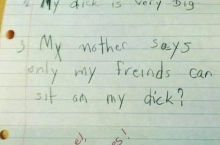 2 My dick is very Big
3 My mother says
only my freinds can
sit on my dick?